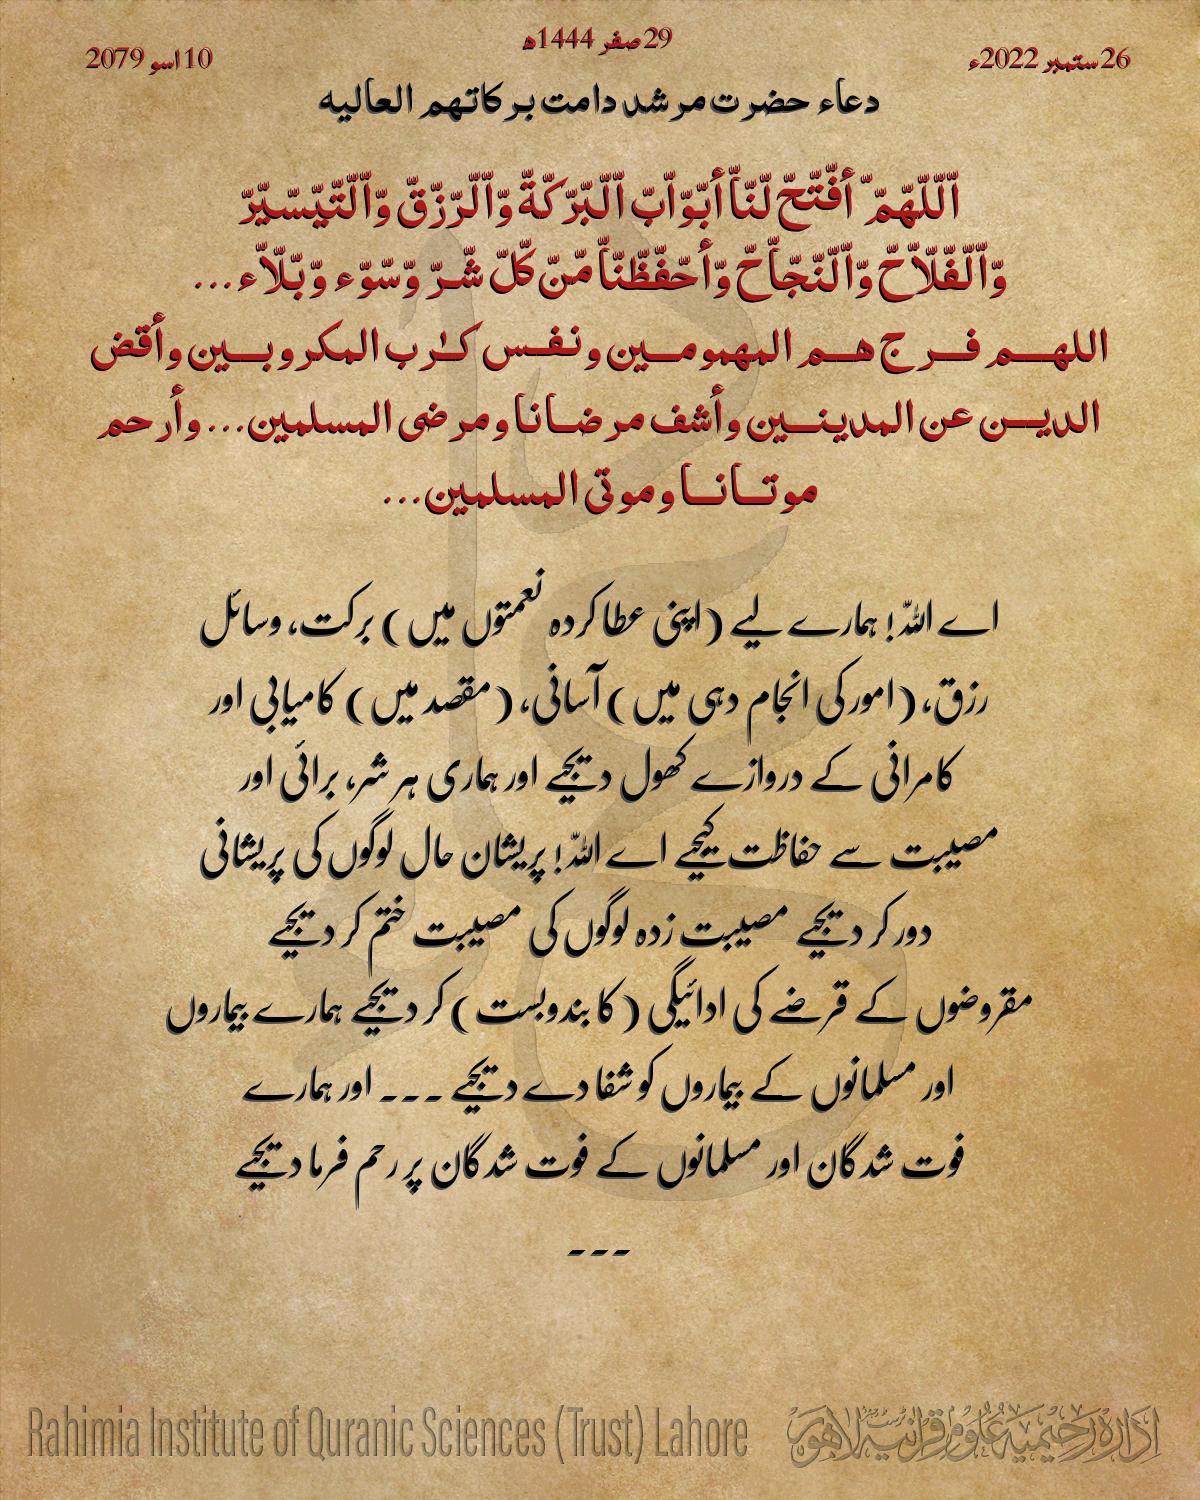 29 صفر 1444ھ
26 ستمبر 2022ء
10 اسو 2079
دعاء حضرت مرشد دامت برکاتہم العالیہ
اللّهمّ أفتح لنا أبواب البركة والرزق والتيسير
والفلاح والنجاح وأحفظنا من كل شر وسوء وبلاء...
اللهم فرج هم المهمومين ونفس كرب المكروبين وأقض
الدين عن المدينين وأشف مرضانا ومرضى المسلمين... وأرحم
موتانا وموتى المسلمين...
اے اللہ! ہمارے لیے (اپنی عطا کردہ نعمتوں میں) برکت، وسائل
رزق، (امور کی انجام دہی میں) آسانی، (مقصد میں) کامیابی اور
کامرانی کے دروازے کھول دیجیے اور ہماری ہر شر، برائی اور
مصیبت سے حفاظت کیجیے اے اللہ! پریشان حال لوگوں کی پریشانی
دور کر دیجیے مصیبت زدہ لوگوں کی مصیبت ختم کر دیجیے
مقروضوں کے قرضے کی ادائیگی (کا بندوبست) کر دیجیے ہمارے بیماروں
اور مسلمانوں کے بیماروں کو شفا دے دیجیے ۔۔۔ اور ہمارے
فوت شدگان اور مسلمانوں کے فوت شدگان پر رحم فرما دیجیے
۔۔۔
ادارہ رحیمیہ علوم قرآنیہ لاہور
Rahimia Institute of Quranic Sciences (Trust) Lahore